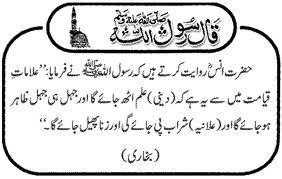 قال رسول اللہ صلی اللہ علیہ وسلم
حضرت انسؓ روایت کرتے ہیں کہ رسول اللہ ﷺ نے فرمایا: ’’علاماتِ
قیامت میں سے یہ ہے کہ (دینی) علم اٹھ جائے گا اور جہل ہی جہل ظاہر
ہوجائے گا اور (علانیہ) شراب پی جائے گی اور زنا پھیل جائے گا۔‘‘
(بخاری)